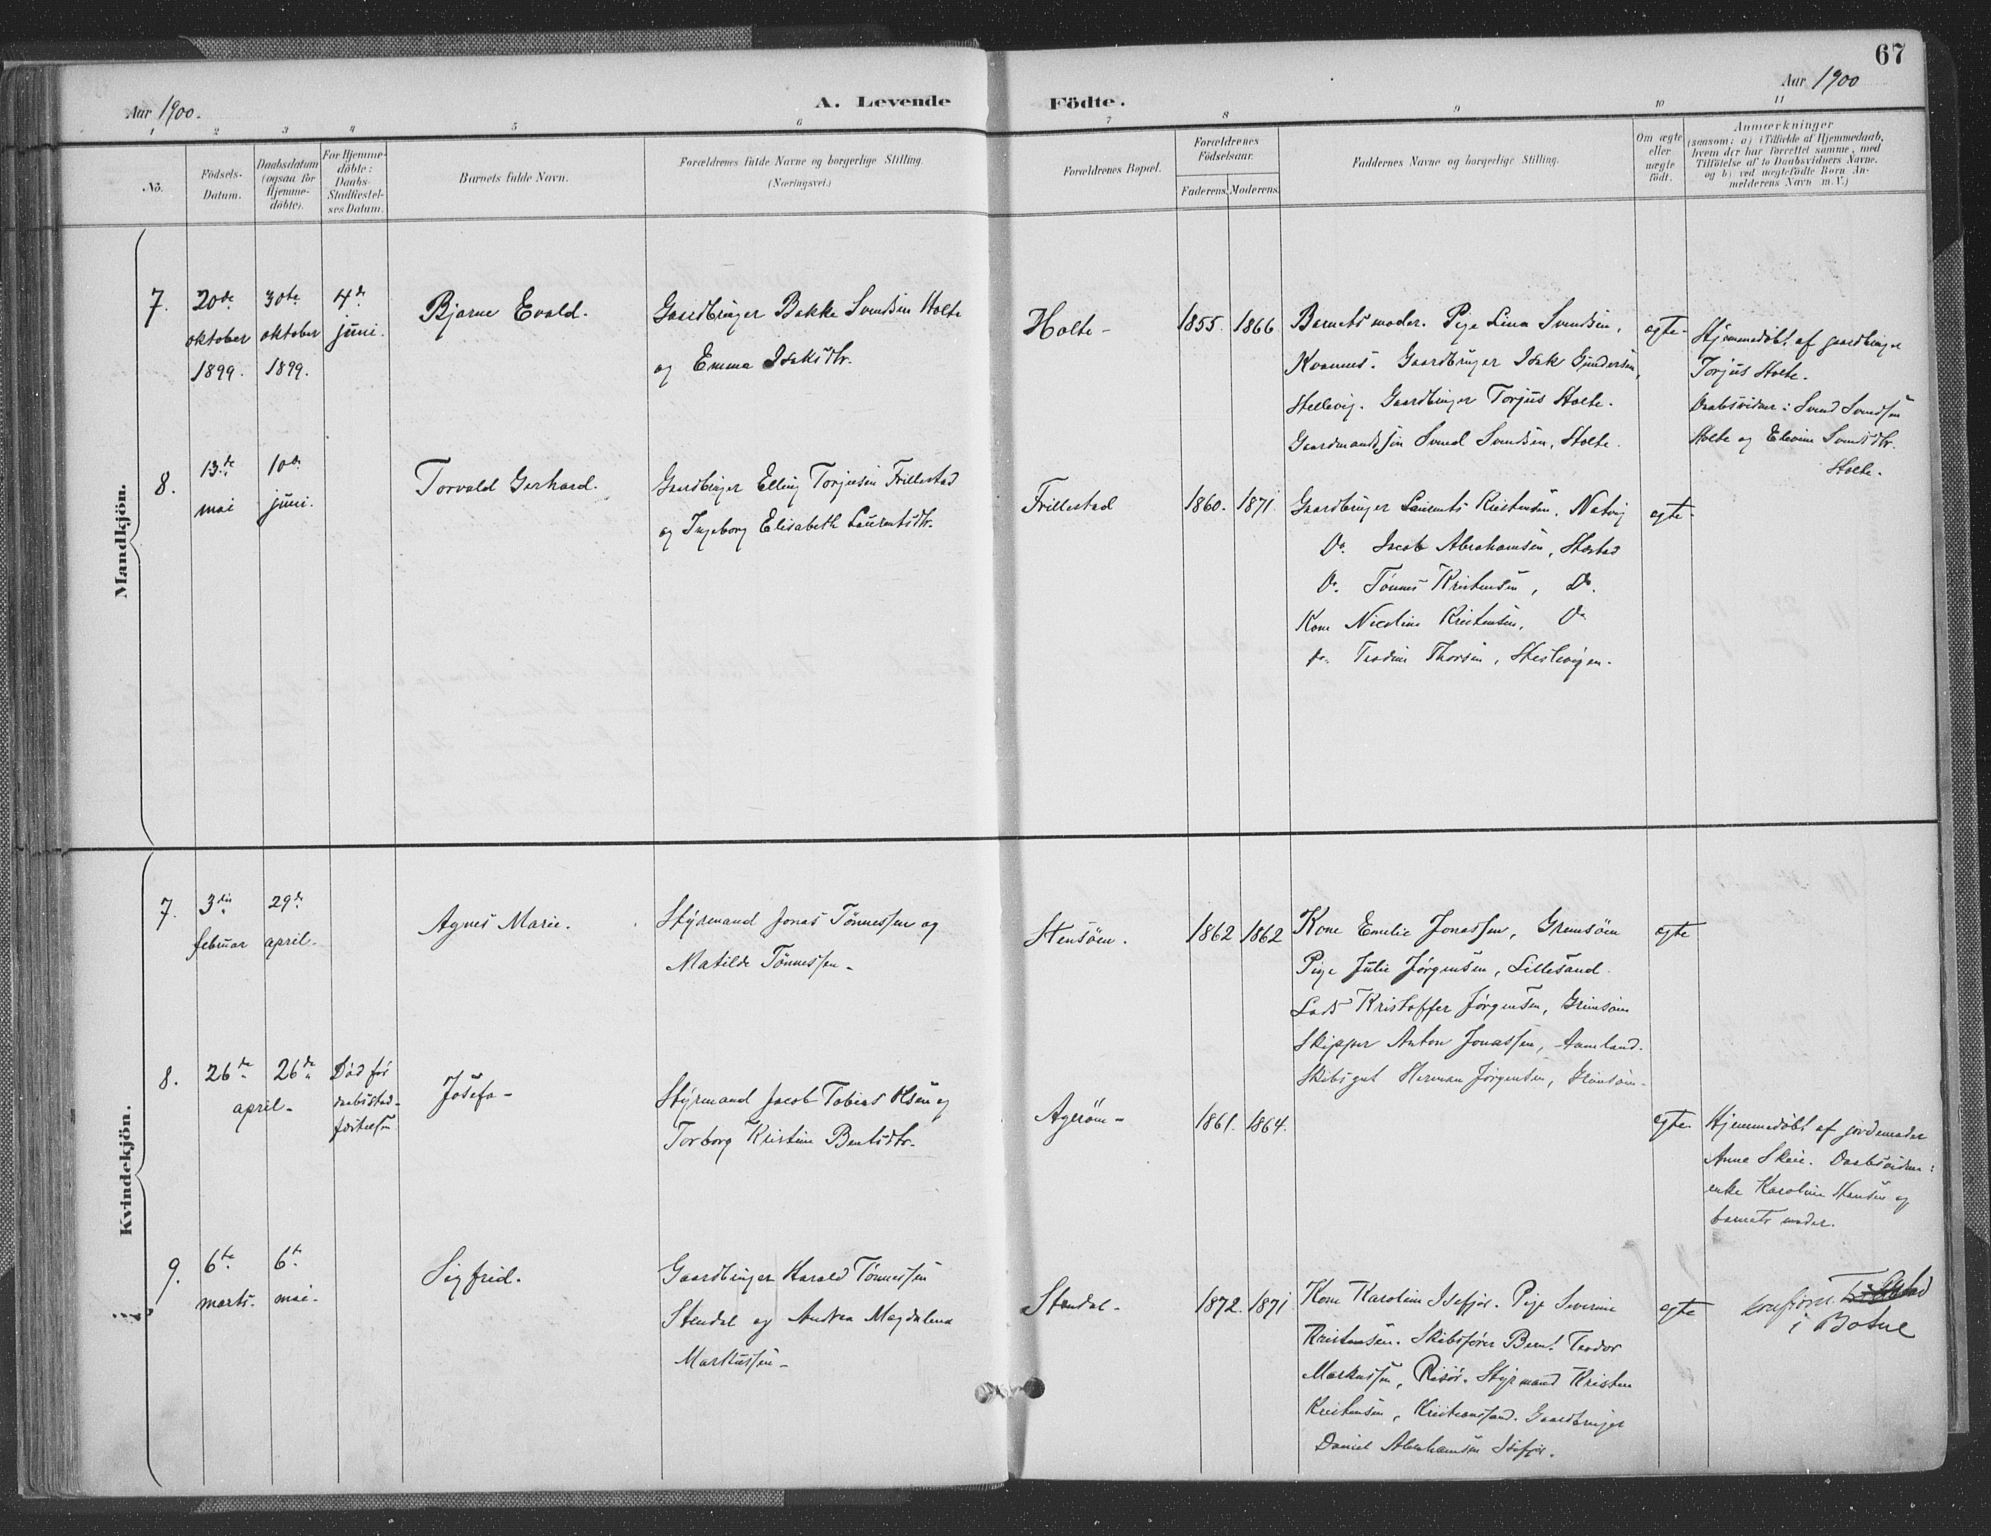 67
Aar 1900.
A. Levende Födte.
Aar 1900
1 2 3 4 5 6 7 8 9 10 11
No.
Födsels-Datum.
Daabsdatum (ogsaa for Hjemme-döbte).
For Hjemme-döbte: Daabs-Stadfæstel-ses Datum.
Barnets fulde Navn.
Forældrenes fulde Navne og borgerlige Stilling.
(Næringsvei.)
Forældrenes Bopæl.
Forældrenes Födselsaar.
Faderens. Moderens.
Faddernes Navne og borgerlige Stilling.
Om ægte eller uægte födt.
Anmærkninger
(saasom: a) i Tilfælde af Hjemmedaab,
hvem der har forrettet samme, med
Tilföielse af to Daabsvidners Navne.
og b) ved uægtefödte Børn An-
melderens Navn m. V.)
Mandkjön.
7.
20de oktober 1899.
30te oktober 1899.
4de juni.
Bjarne Evald.
Gaardbruger Bakke Svendsen Holte
og Emma Isaksdtr.
Holte-
1855. 1866
Barnets moder. Pige Lina Svendsen,
Kvannes. Gaardbruger Isak Gundersen,
Hellevig. Gaardbruger Torjus Holte.
Gaardmandssøn Svend Svendsen, Holte.
egte-
Hjemmedøbt af gaardbruger
Torjus Holte.
Daabsvidner: Svend Svendsen
Holte og Elevine Svendsdtr.
Holte.
8.
13.de mai
10de juni.
Torvald Gerhard.
Gaardbruger Elling Torjusen Frillestad
og Ingeborg Elisabeth Laurentsdtr.
Frillestad
1860. 1871.
Gaardbruger Laurents Kristensen, Natvig
Do. Jacob Abrahamsen, Hæstad
Do. Tønnes Kristensen, Do.
Kone Nicoline Kristensen, Do
Do. Teodine Thorsen, Hestevigen.
egte-
Kvindekjön.
7.
3die februar
29de april-
Agnes Marie.
Styrmand Jonas Tönnessen og
Matilde Tönnessen-
Stensöen.
1862 1862
Kone Emelie Jonassen, Grimsöen
Pige Julie Jørgensen, Lillesand.
Lods Kristoffer Jørgensen, Grimsöen
Skipper Anton Jonassen, Aamland.
Skibsgut Herman Jørgensen, Grimsöen-
egte
8.
26de 26de
april-
Død før
daabsstad-
fæstelsen
Josefa-
Styrmand Jacob Tobias Olsen og
Torborg Kristine Berntsdtr.
Agerøen-
1861. 1864.
egte.
Hjemmedøbt af jordemoder
Anne Skeie. Daabsvidner:
enke Karoline Hansen og
barnets moder.
9.
6te marts.
6te mai-
Sigfrid.
Gaardbruger Harald Tönnessen
Stendal og Andrea Magdalena
Markussen-
Stendal-
1872. 1871
Kone Karoline Isefjær. Pige Severine
Kristensen. Skibsfører Bernt Teodor
Markussen, Risør. Styrmand Kristen
Kristensen, Kristianssand. Gaardbruger
Daniel Abrahamsen Isefjær.
egte
konfirm.
i Botne